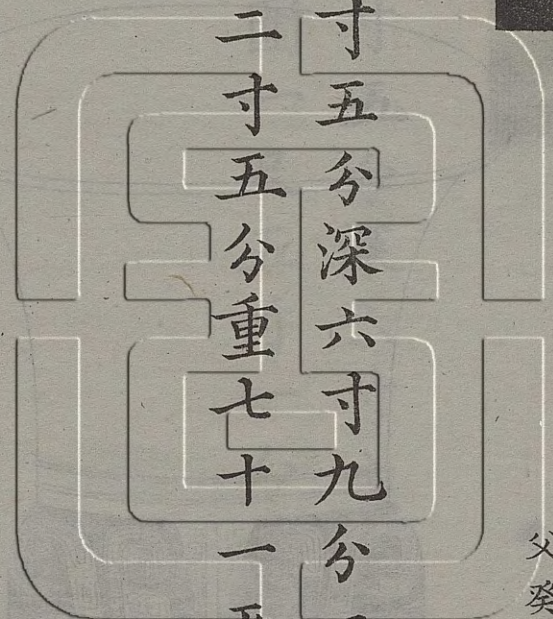 寸五分深六寸九分
二寸五分重七十一
父癸